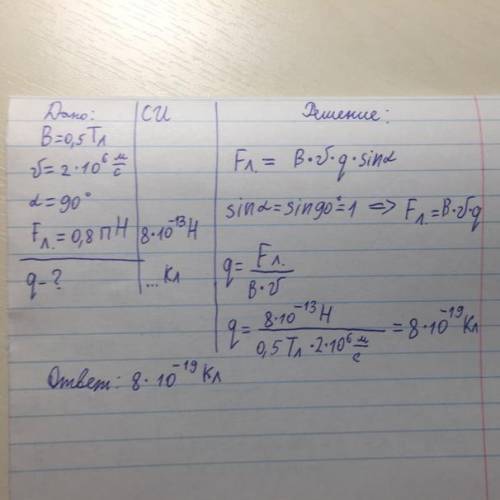 Дано:
B=0,5 Тл
v=2·10⁶ м/с
α=90°
Fл.=0,8 пН
q-?
СИ
8·10⁻¹³Н
... Кл
Решение:
Fл.= B·v·q·sinα
sinα=sin90°=1 => Fл.=B·v·q
q= Fл./B·v
q= 8·10⁻¹³Н/0,5Тл·2·10⁶ м/с =8·10⁻¹⁹Кл
Ответ: 8·10⁻¹⁹ Кл